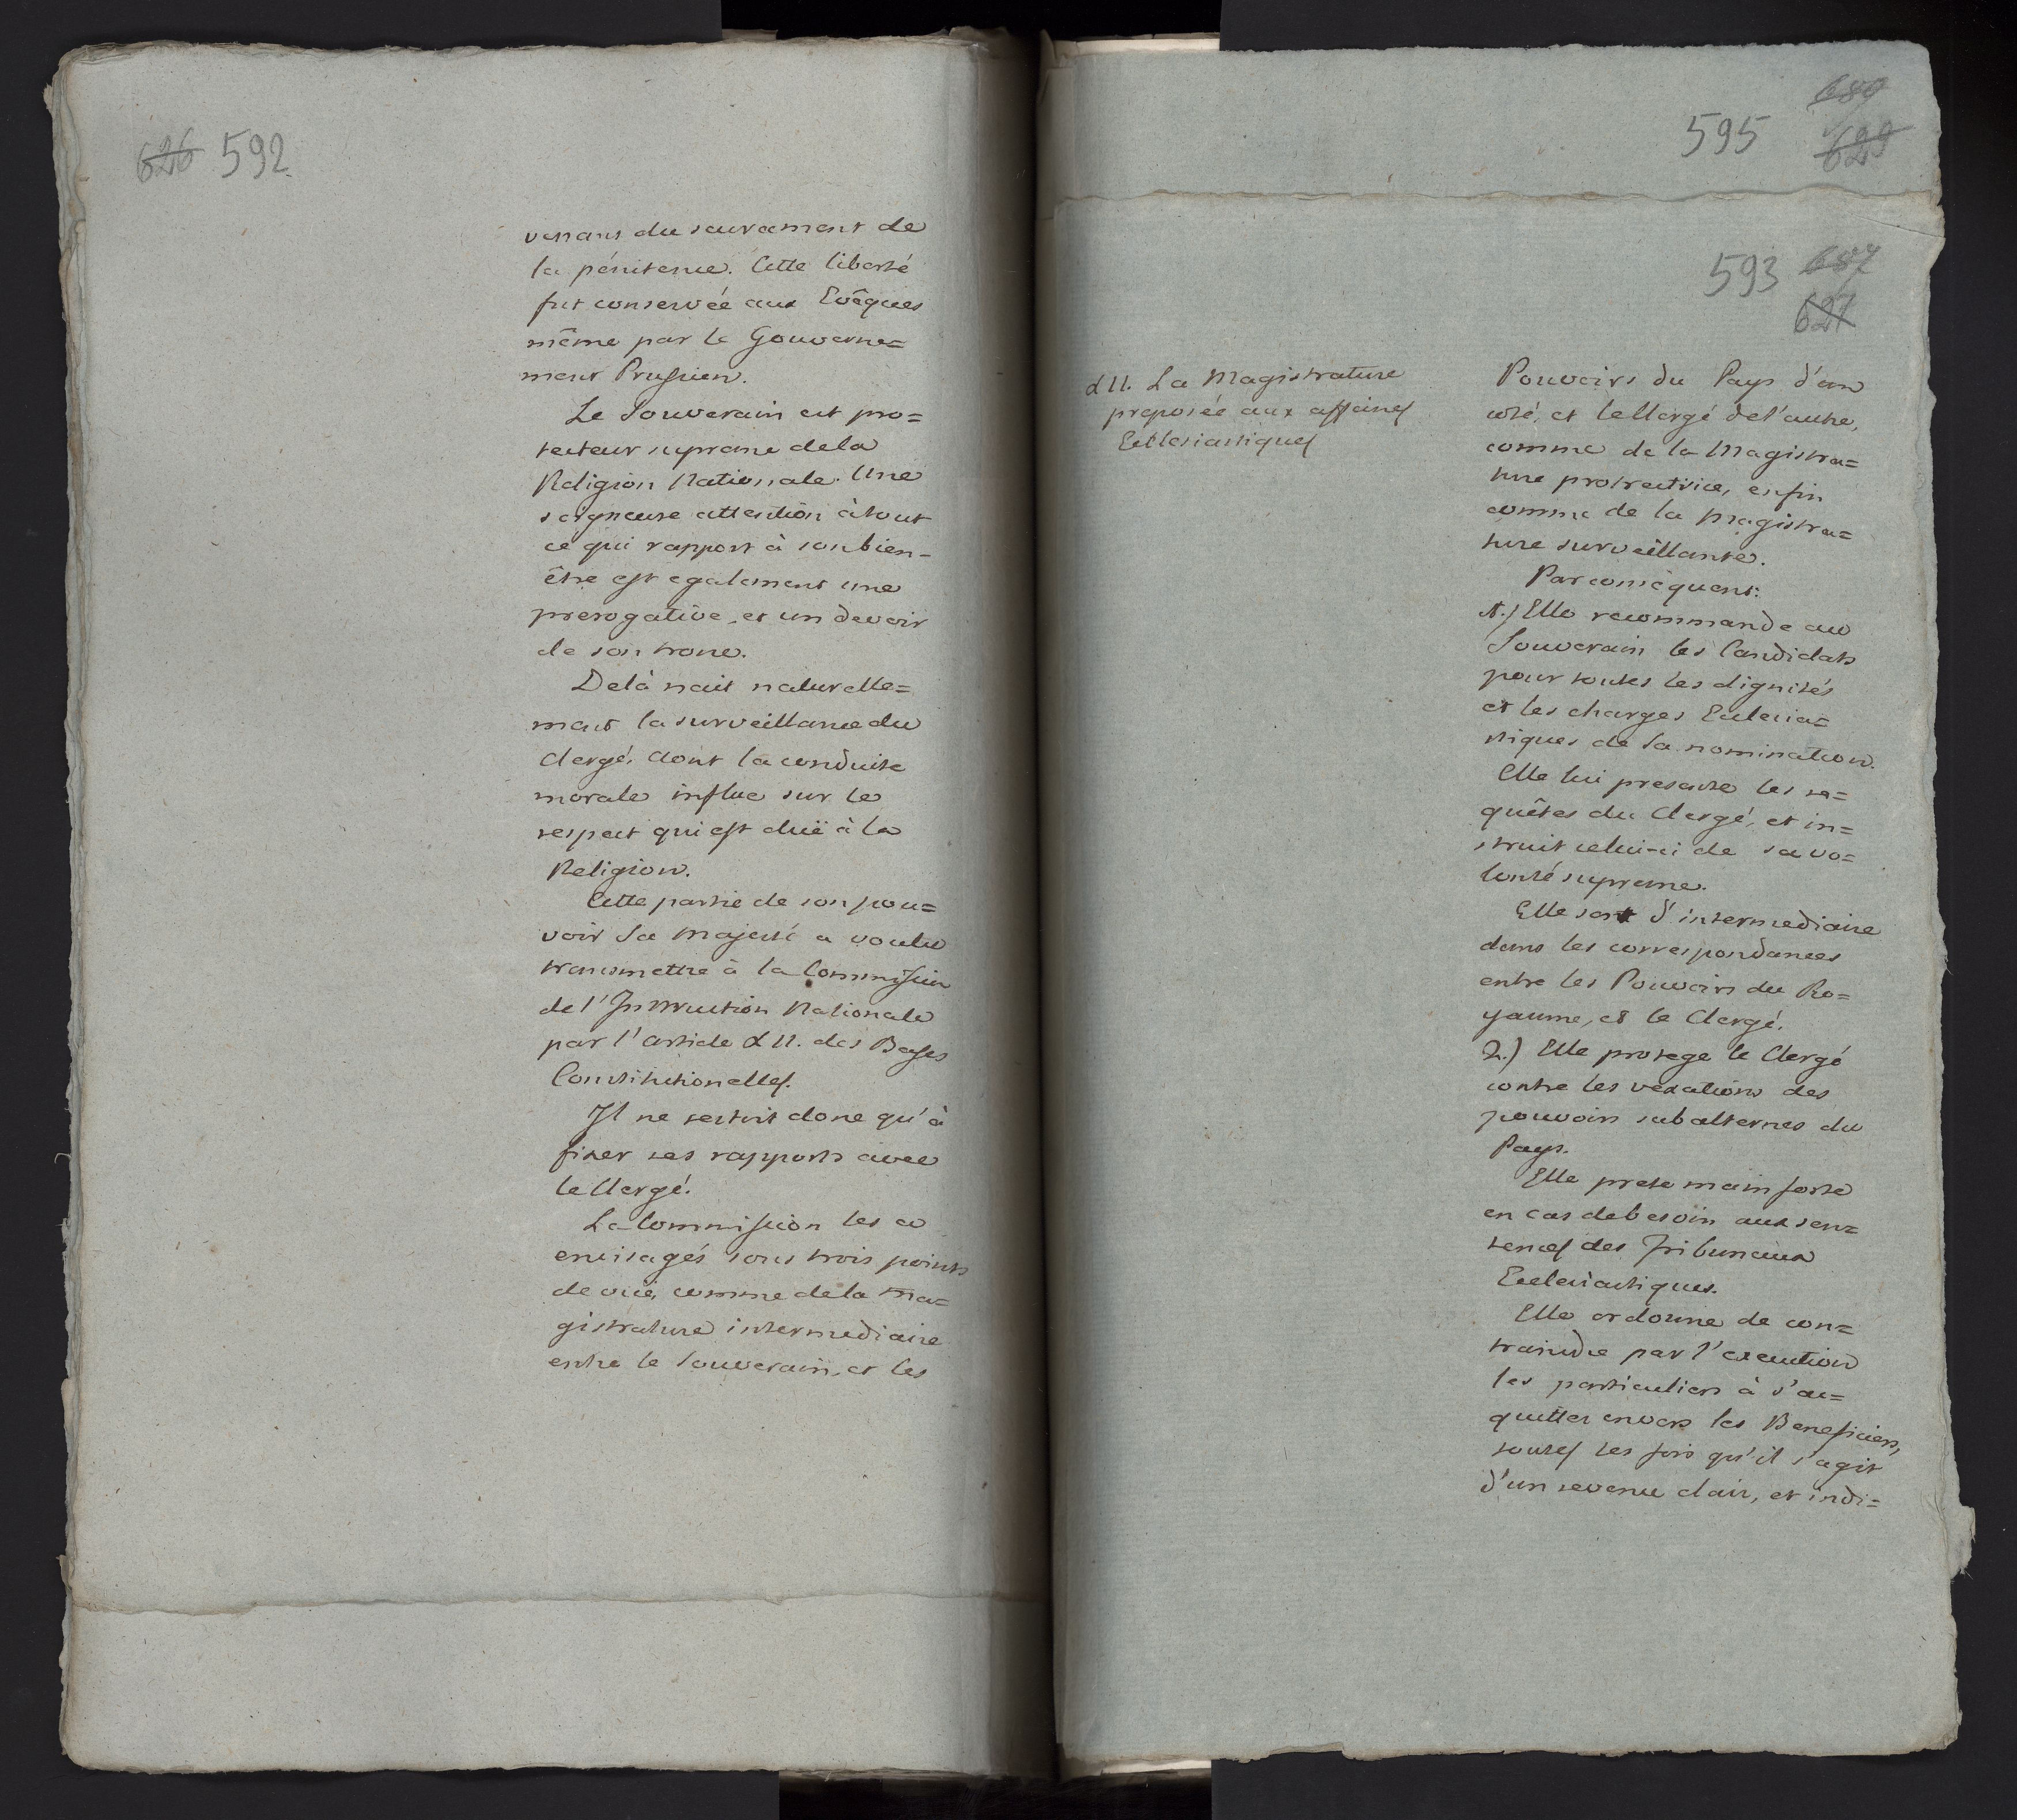 626 592
venans du sacrement de
la pénitence. Cette liberté
fut conservée aux Evêques
même par le Gouverne=
ment Prussien.
Le Souverain est pro=
tecteur supreme de la
Religion Nationale. Une
soigneuse attention à tout
ce qui rapport à son bien-
être est egalement une
prerogative, et un devoir
de son trone.
Delà nait naturelle=
ment la surveillance du
Clergé, dont la conduite
morale influe sur le
respect qui est duë à la
Religion.
Cette partie de son pou=
voir Sa Majesté a voulu
transmettre à la Commission
de l'Instruction Nationale
par l'article XII. des Bases
Constitutionelles.
Il ne restoit donc qu'à
fixer ses rapports avec
le Clergé.
La Commission les a
envisagés sous trois points
de vuë, comme de la Ma=
gistrature intermediaire
entre le Souverain, et les
595 689
629
593 687
627
XII. La Magistrature
preposée aux affaires
Ecclesiastiques
Pouvoirs du Pays d'un
coté, et le Clergé de l'autre,
comme de la Magistra=
ture protrectrice, enfin
comme de la Magistra=
ture surveillante.
Par conséquent:
1.) Elle recommande au
Souverain les Candidats
pour toutes les dignités
et les charges Ecclesia=
stiques de sa nomination.
Elle lui presente les re=
quêtes du Clergé, et in=
struit celui-ci de sa vo=
lonté supreme.
Elle sert d'intermediaire
dans les correspondances
entre les Pouvoirs du Ro=
yaume, et le Clergé.
2.) Elle protege le Clergé
contre les vexations des
pouvoirs subalternes du
Pays.
Elle prete main forte
en cas de besoin aux sen=
tences des Tribunaux
Ecclesiastiques.
Elle ordonne de con=
traindre par l'execution
les particuliers à s'ac=
quitter envers les Beneficiers,
toutes les fois qu'il s'agit
d'un revenu clair, et indi=